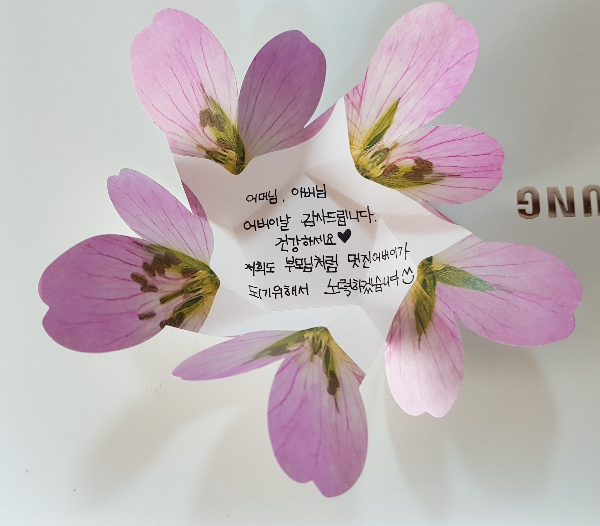 어머님, 아버님
어버이날 감사드립니다.
건강하세요♥
저희도 부모님처럼 멋진어버이가
되기위해서 노력하겠습니다^^
UNG